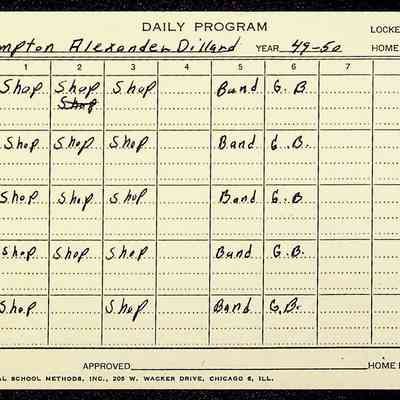 DAILY PROGRAM
LOCKE
mpton Alexander Dillard YEAR 49-50 HOME
1 2 3 4 5 6 7
Shop Shop Shop Band G.B.
Shop
Shop Shop Shop Band G.B.
Shop Shop Shop Band G.B.
Shop Shop Shop Band G.B.
Shop Shop Band G.B.
APPROVED HOME
AL SCHOOL METHODS, INC., 205 W. WACKER DRIVE, CHICAGO 6, ILL.